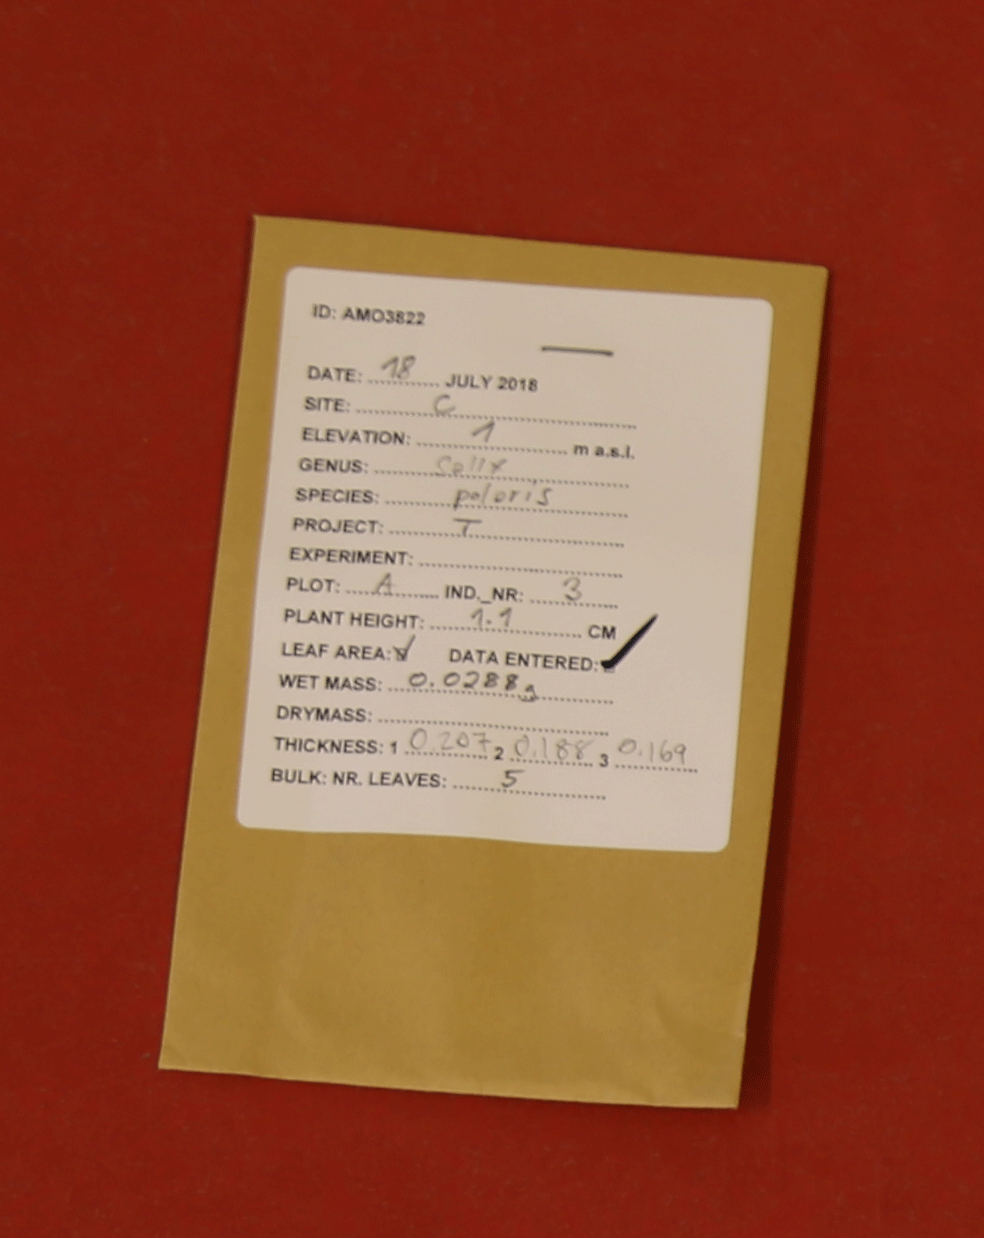 ID: AMO3822
DATE: 18 JULY 2018
SITE: C
ELEVATION: 1 m a.s.l.
GENUS: Salix
SPECIES: polaris
PROJECT: T
EXPERIMENT:
PLOT: A IND._NR: 3
PLANT HEIGHT: 1.1 CM
LEAF AREA: DATA ENTERED:
WET MASS: 0.0288g
DRYMASS:
THICKNESS: 1 0.207 2 0.188 3 0.169
BULK: NR. LEAVES: 5